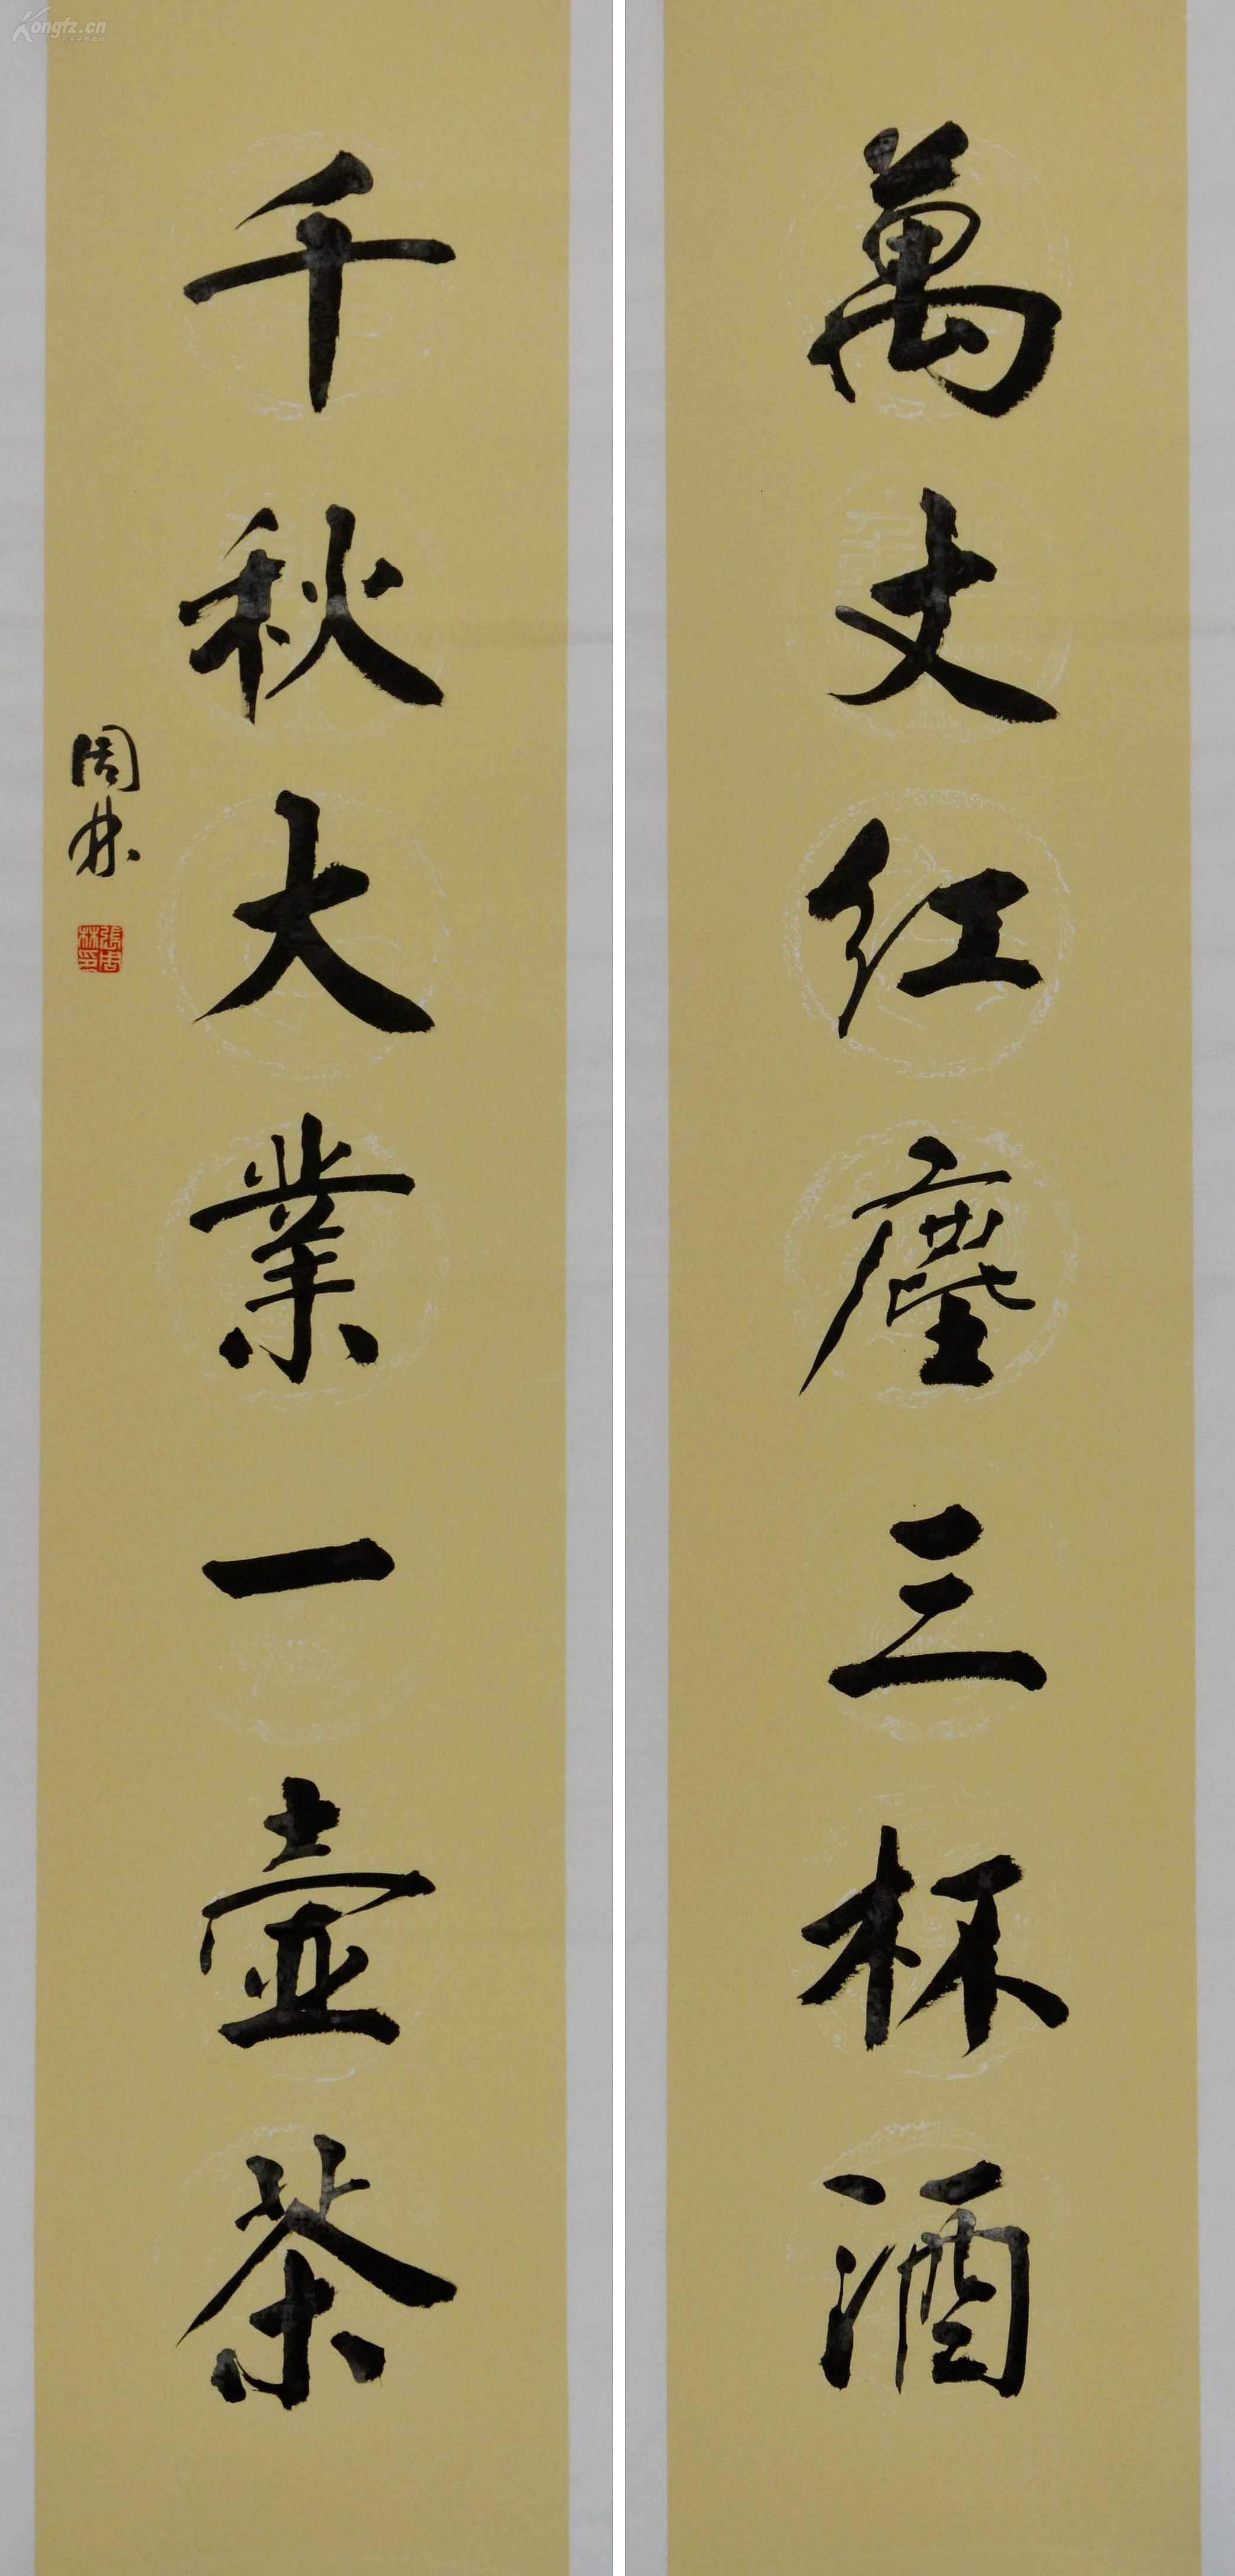 萬丈红塵三杯酒
千秋大業一壺茶
周林
張周林印
Kongfz.cn